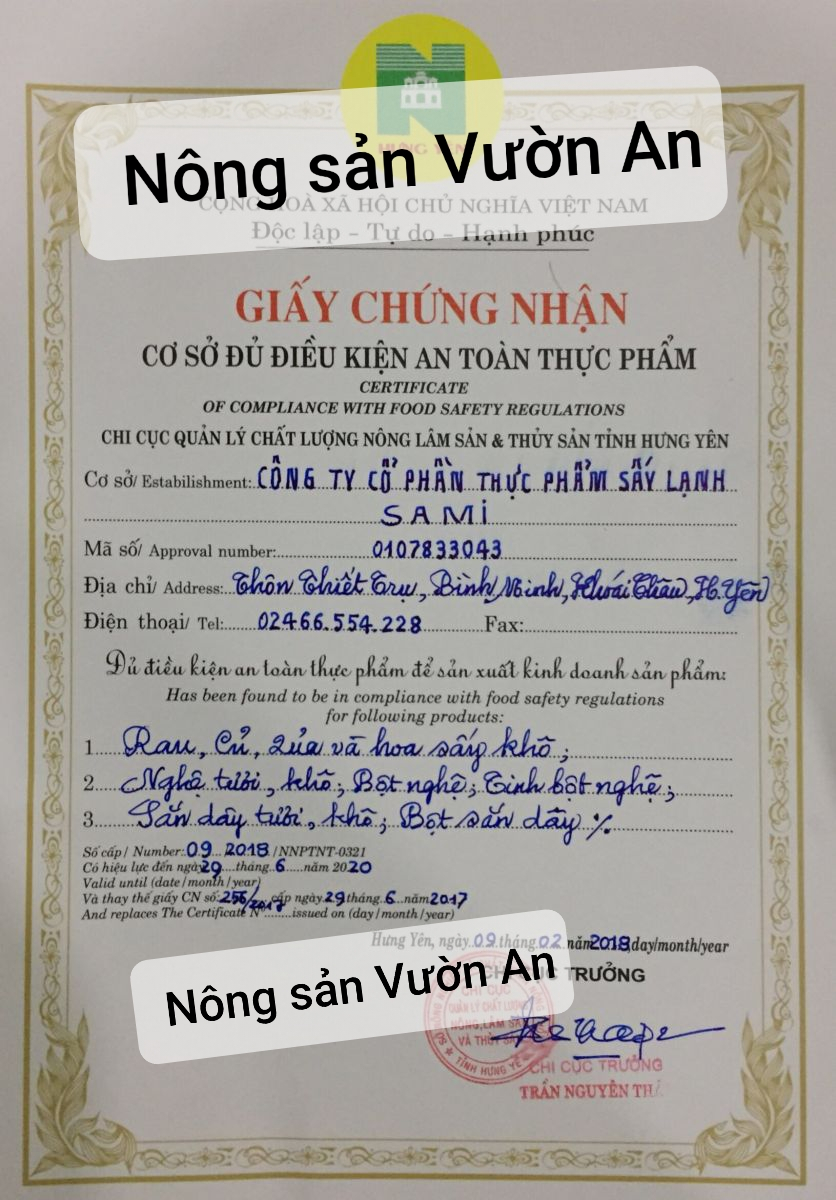 HƯNG YÊN
Nông sản Vườn An
CỘNG HOÀ XÃ HỘI CHỦ NGHĨA VIỆT NAM
Độc lập - Tự do - Hạnh phúc
GIẤY CHỨNG NHẬN
CƠ SỞ ĐỦ ĐIỀU KIỆN AN TOÀN THỰC PHẨM
CERTIFICATE
OF COMPLIANCE WITH FOOD SAFETY REGULATIONS
CHI CỤC QUẢN LÝ CHẤT LƯỢNG NÔNG LÂM SẢN & THỦY SẢN TỈNH HƯNG YÊN
Cơ sở/ Estabilishment: CÔNG TY CỔ PHẦN THỰC PHẨM SẤY LẠNH
SAMI
Mã số/ Approval number: 0107833043
Địa chỉ/ Address: Thôn Thiết Trụ, Bình Minh, Khoái Châu, H.Yên
Điện thoại/ Tel: 02466.554.228 Fax:
Đủ điều kiện an toàn thực phẩm để sản xuất kinh doanh sản phẩm:
Has been found to be in compliance with food safety regulations
for following products:
1. Rau, Củ, quả và hoa sấy khô;
2. Nghệ tươi, khô; Bột nghệ; Tinh bột nghệ;
3. Sắn dây tươi, khô; Bột sắn dây ./.
Số cấp/ Number: 09 2018 /NNPTNT-0321
Có hiệu lực đến ngày 29 tháng 6 năm 2020
Valid until (date/month/year)
Và thay thế giấy CN số: 256/2017 cấp ngày 29 tháng 6 năm 2017
And replaces The Certificate N° issued on (day/month/year)
Hưng Yên, ngày 09 tháng 02 năm 2018 day/month/year
CHI CỤC TRƯỞNG
Nông sản Vườn An
CHI CỤC
QUẢN LÝ CHẤT LƯỢNG
NÔNG, LÂM SẢN
VÀ THỦY SẢN
TỈNH HƯNG YÊN
CHI CỤC TRƯỞNG
TRẦN NGUYÊN